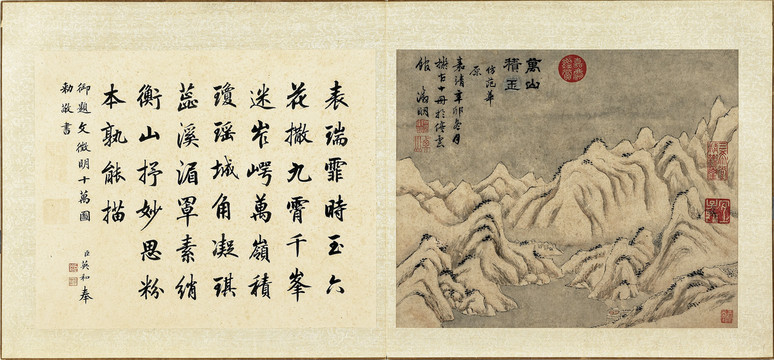 萬山
積玉
仿范華
原
嘉靖辛卯冬月
古十冊於停雲
館 徵明
表瑞霏時玉六
花撒九霄千峯
迷岝崿萬嶺積
瓊瑤城角凝琪
蕊溪湄罩素綃
衡山抒妙思粉
本孰能描
御題文徵明十萬圖 臣英和奉
勅敬書